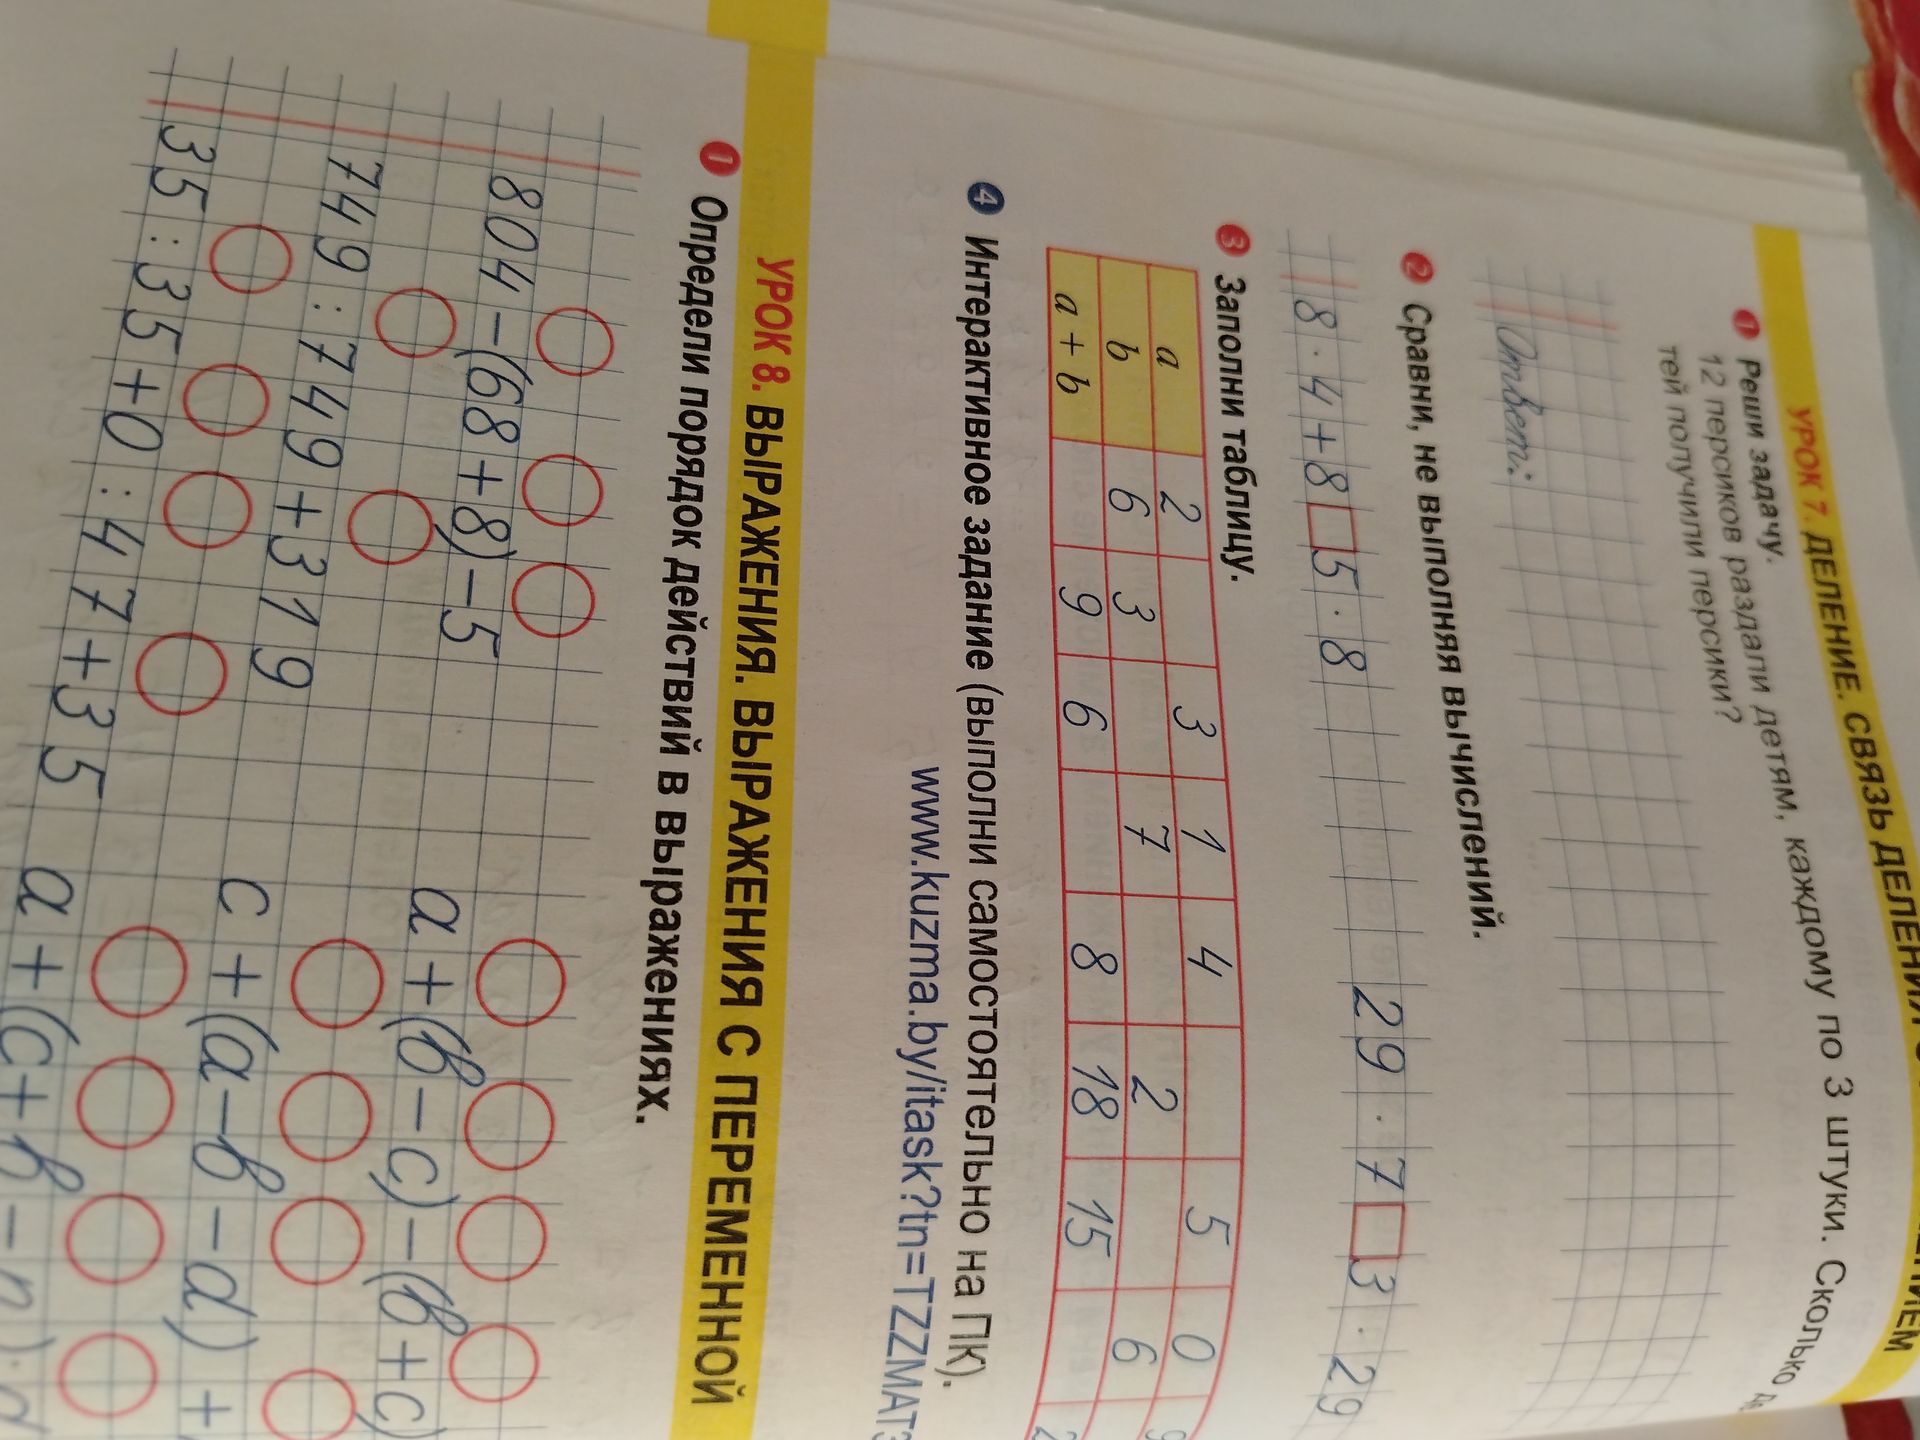 УРОК 7. ДЕЛЕНИЕ. СВЯЗЬ ДЕЛЕНИЯ
1 Реши задачу.
12 персиков раздали детям, каждому по 3 штуки. Сколько
тей получили персики?
Ответ:
2 Сравни, не выполняя вычислений.
8 · 4 + 8 □ 5 · 8 29 · 7 □ 3 · 29
3 Заполни таблицу.
a 2 3 1 4 5 0 9
b 6 3 7 2 6
a + b 9 6 8 18 15 2
4 Интерактивное задание (выполни самостоятельно на ПК).
www.kuzma.by/itask?tn=TZZMAT3
УРОК 8. ВЫРАЖЕНИЯ. ВЫРАЖЕНИЯ С ПЕРЕМЕННОЙ
1 Определи порядок действий в выражениях.
804 – (68 + 8) – 5 a + (b – c) – (b + c)
749 : 749 + 319 c + (a – b – d) +
35 : 35 + 0 : 47 + 35 a + (c + b – n) · d